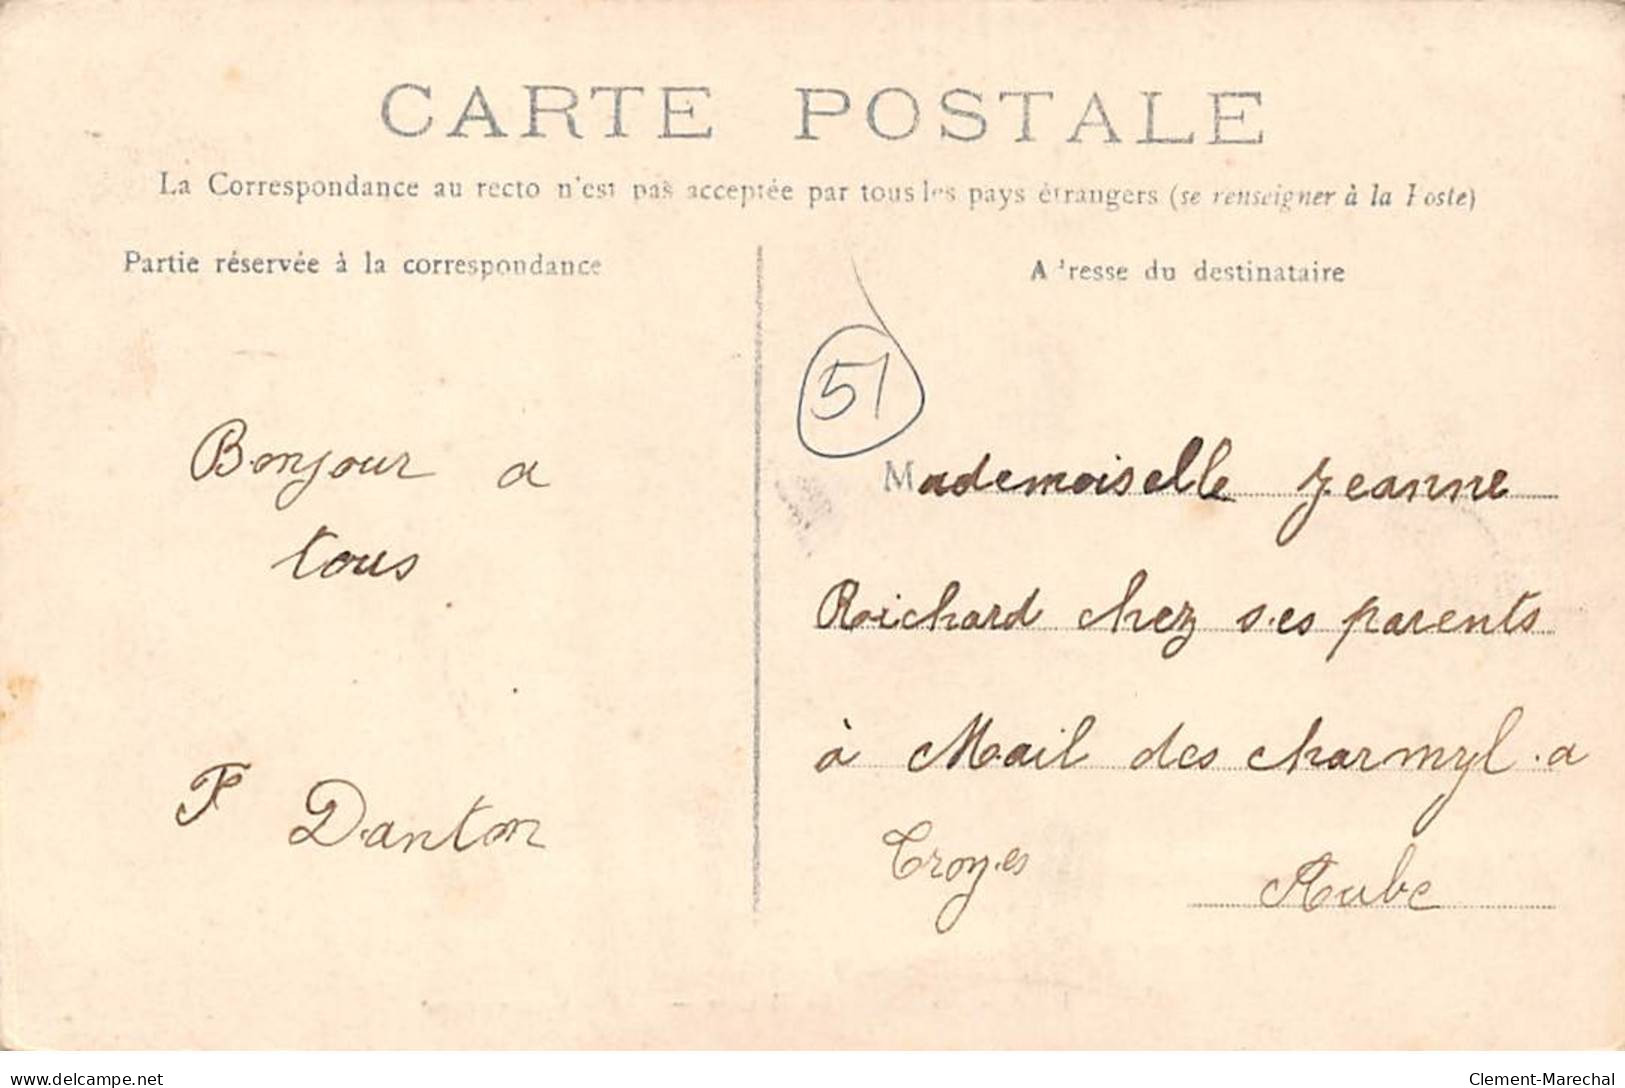 CARTE POSTALE
La Correspondance au recto n'est pas acceptée par tous les pays étrangers (se renseigner à la Poste)
Partie réservée à la correspondance
Adresse du destinataire
51
Bonjour a
tous
F Danton
Mademoiselle Jeanne
Richard chez ses parents
à Mail des charmyl a
Troyes
Aube
delcampe.net
Clement-Marechal